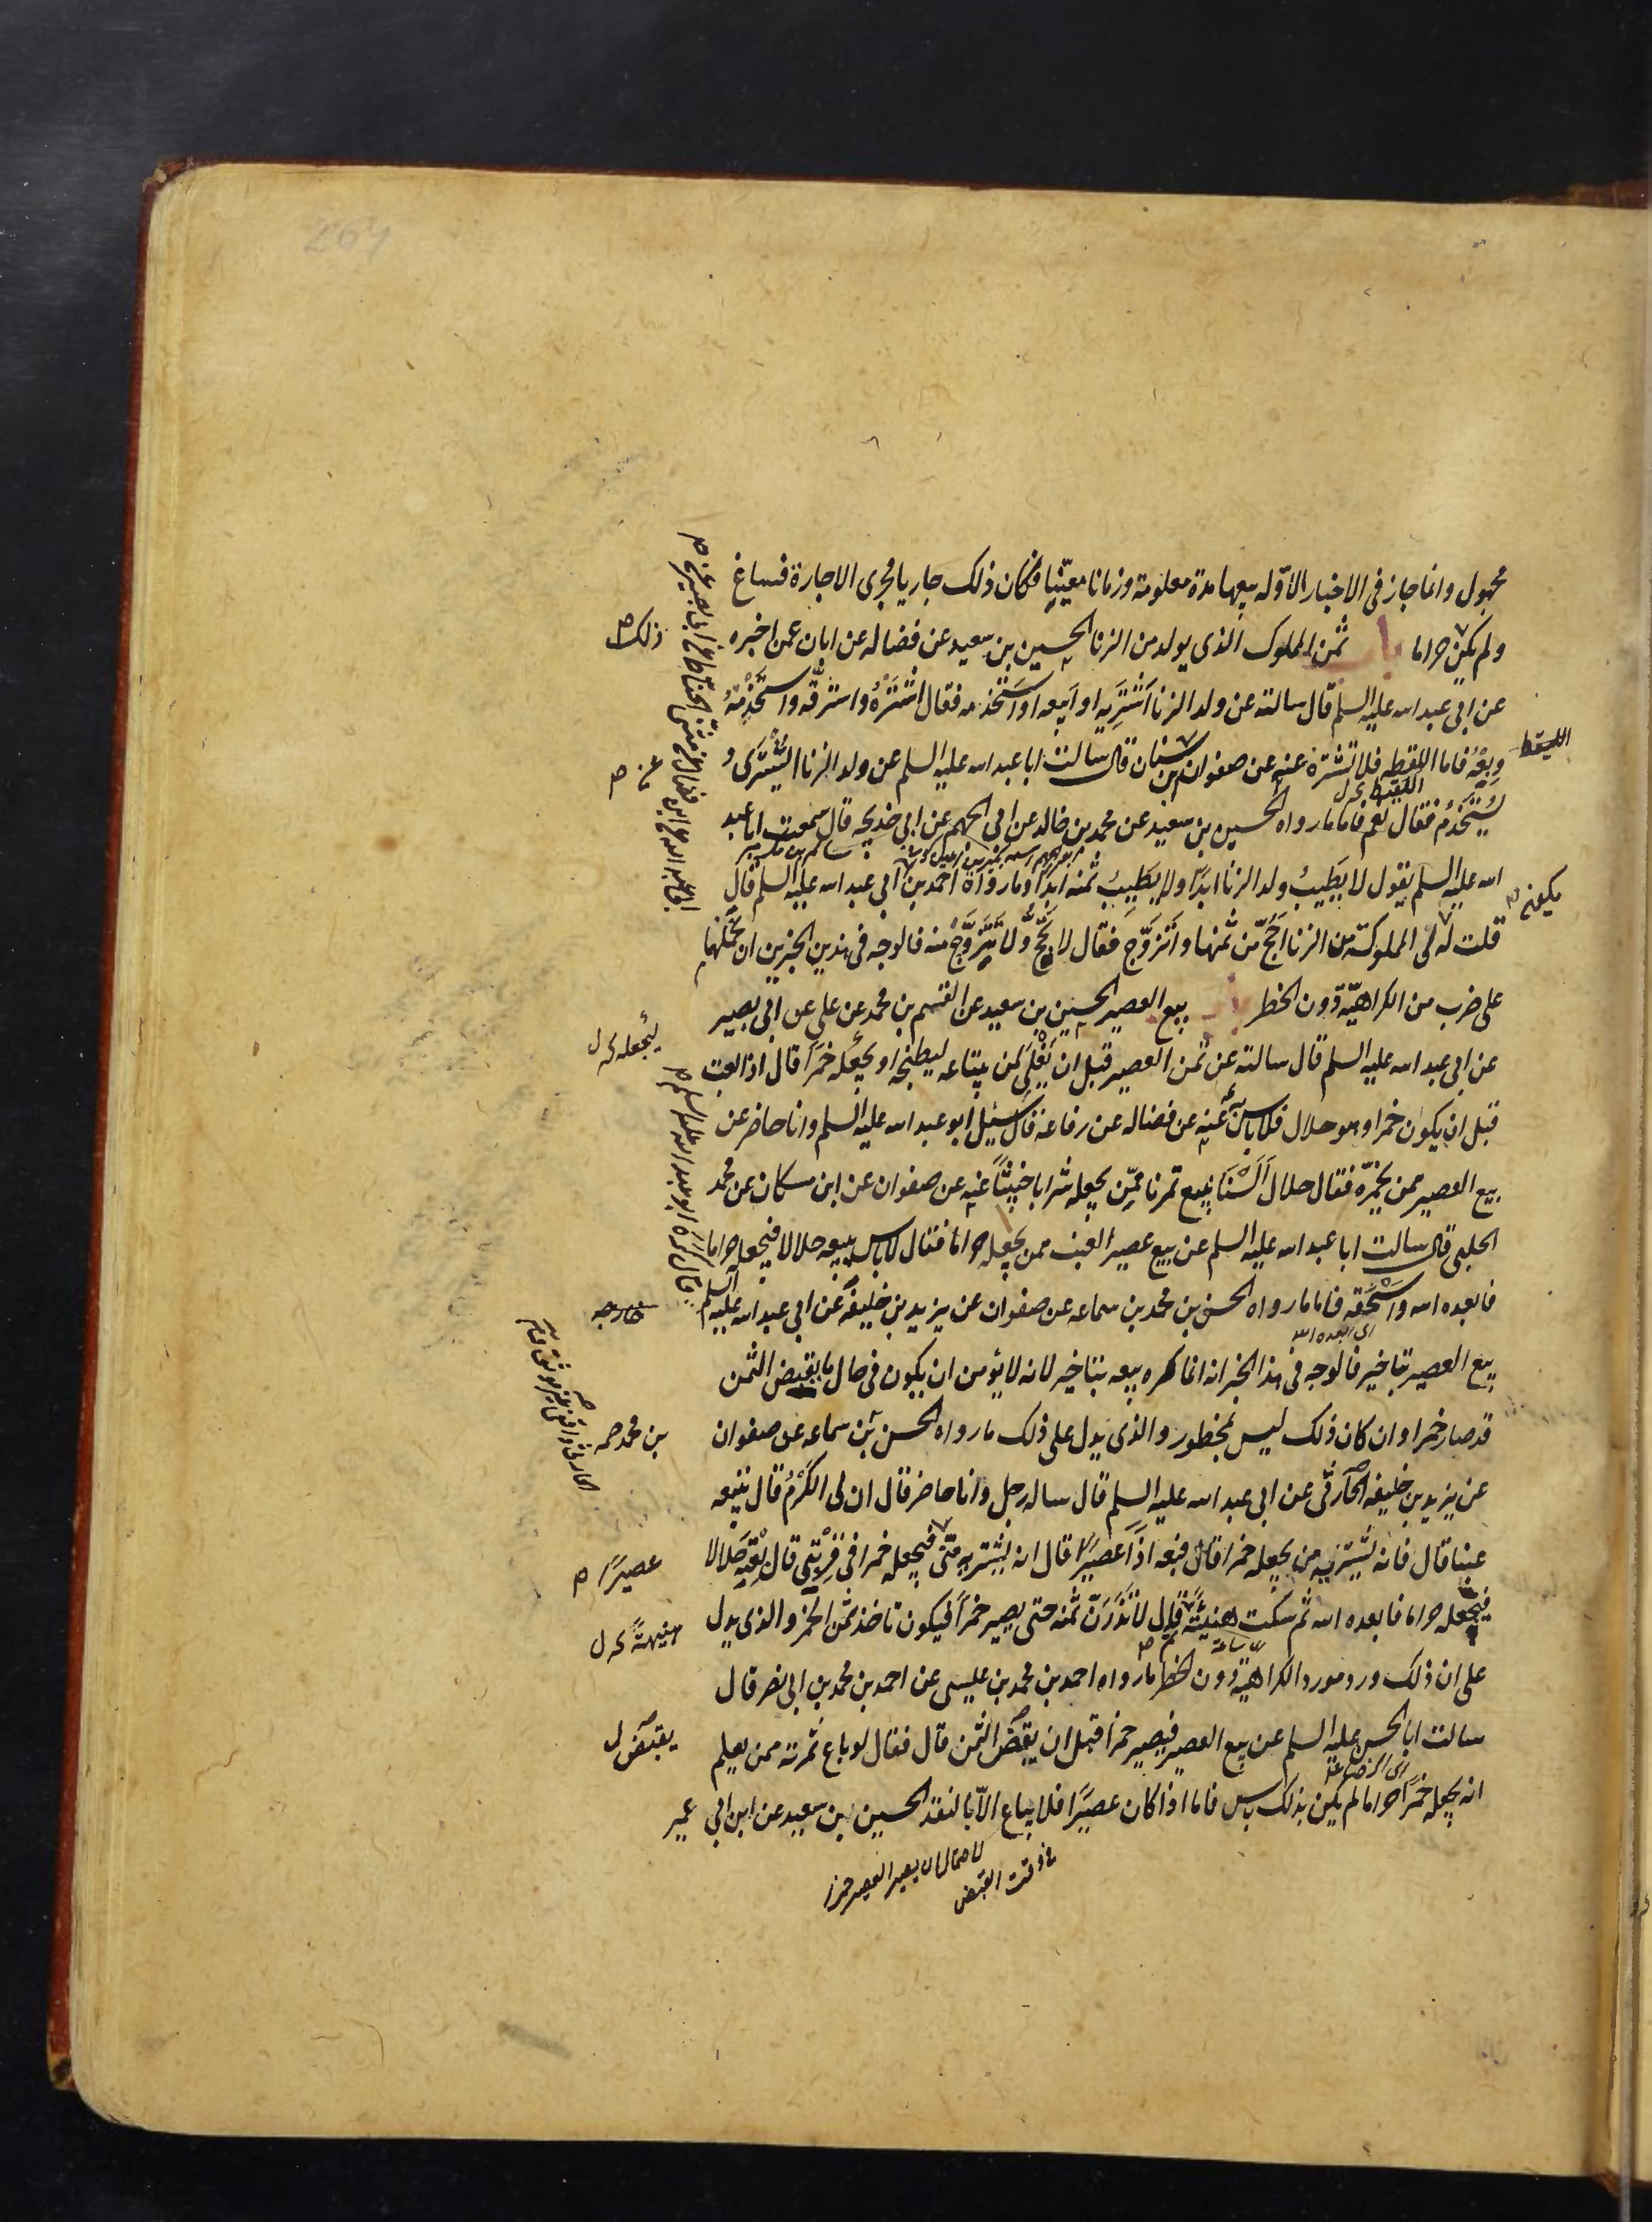 مجهول وانما جاز فى الاخبار الاوّله بيعها مدة معلومة وزمانا معيّنا فكان ذلك جاريا مجرى الاجارة فساغ
ذلك ص
ولم يكن حراما باب ثمن المملوك الذى يولد من الزنا الحسين بن سعيد عن فضاله عن ابان عمن اخبره
عن ابى عبد الله عليه السلم قال سالته عن ولد الزنا اَشْتَرِيه او اَبيعه او اَسْتَخْدِمه فقال اشْتَرْهُ واسترقّه واسْتَخْدِمْهُ
اللقيط
وبِعْهُ فاما اللقطه فلا تشترهْ عنه عن صفوان بن سنان قال سالت ابا عبد الله عليه السلم عن ولد الزنا ايُشْتَرَى
عن ص
اللقيط خ ل
يُسْتَخْدَمُ فقال نعم فاما ما رواه الحسين بن سعيد عن محمد بن خالد عن ابى الجهم عن ابى خديجه قال سمعت ابا عبد
الله عليه السلم يقول لا يَطِيبُ ولد الزنا ابدًا ولا يَطِيبُ ثمنه ابدًا وما رواه احمد بن ابى عبد الله عليه السلم قال
يكون ص
قلت له لى المملوكة من الزنا اَحُجّ من ثمنها واَتزوّج فقال لا تحجّ ولا تتزوّج منه فالوجه فى هذين الخبرين ان نحملهما
على ضرب من الكراهيّة دون الحظر باب بيع العصير الحسين بن سعيد عن القسم بن محمد عن على عن ابى بصير
ليجعله خ ل
عن ابى عبد الله عليه السلم قال سالته عن ثمن العصير قبل ان يَغْلِىَ لمن يبتاعه ليطبخه او يجعله خمرًا قال اذا بعت
قبل ان يكون خمرا وهو حلال فلا باس عنه عن فضاله عن رفاعة قال سئل ابو عبد الله عليه السلم وانا حاضر عن
بيع العصير ممن يخمّره فقال حلال اَلَسْنا نبيع تمرنا ممّن يجعله شرابا خبيثًا عنه عن صفوان عن ابن مسكان عن محمد
الحلبى قال سالت ابا عبد الله عليه السلم عن بيع عصير العنب ممن يجعله حراما فقال لا باس ببيعه حلالا فيجعله حراما
فابعده الله واَسْحَقه فاما ما رواه الحسن بن محمد بن سماعه عن صفوان عن يزيد بن خليفه عن ابى عبد الله عليه السلم
اى ابعده الله
بيع العصير بتاخير فالوجه فى هذا الخبر انه انما كره بيعه بتاخير لانه لا يؤمن ان يكون فى حال ما يقبض الثمن
قد صار خمرا وان كان ذلك ليس بمحظور والذى يدل على ذلك ما رواه الحسن بن سماعه عن صفوان
بن محمد صح
عن يزيد بن خليفه الحارثى عن ابى عبد الله عليه السلم قال ساله رجل وانا حاضر قال ان لى الكَرْمُ قال تبيعه
عنبا قال فانه يشتريه من يجعله خمرا قال فبعه اذًا عصيرًا قال انه يشتريه منّى فيجعله خمرا فى قِرْبتى قال بِعْتَه حَلالا
عصيرًا ص
فيجعله حراما فابعده الله ثم سكت هنيئةً ثم قال لا تَذَرَنّ ثمنه حتى يصير خمرًا فيكون تاخذ ثمن الخمر والذى يدل
هنيهةً خ ل
اى ساعة
على ان ذلك ورد مورد الكراهيّة دون الحظر ما رواه احمد بن محمد بن عليسى عن احمد بن محمد بن ابى نصر قال
سالت ابا الحسن عليه السلم عن بيع العصير فيصير خمرًا قبل ان يقبض الثمن قال فقال لو باع ثمرته ممن يعلم
يقبض ل
انه يجعله خمرًا حراما لم يكن بذلك باس فاما اذا كان عصيرًا فلا يباع الاّ بالنقد الحسين بن سعيد عن ابن ابى عمير
لاحتمال ان يصير العصير خمرا
فى وقت القبض